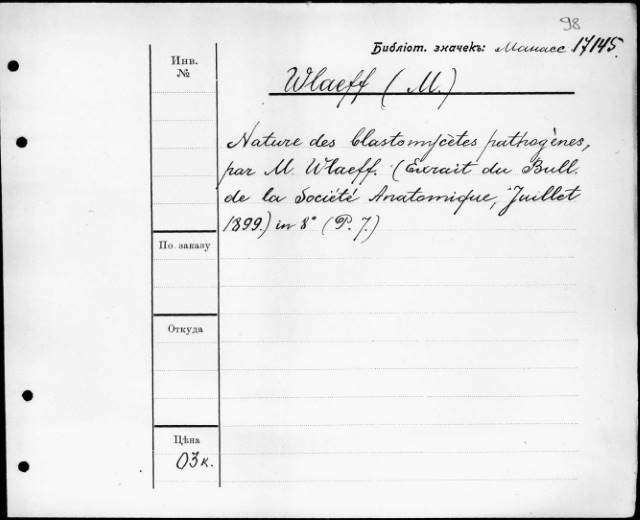 98
Библіот. значекъ: Манасс 17145.
Инв.
№
Wlaeff (M.)
Nature des blastomycètes pathogènes,
par M. Wlaeff. (Extrait du Bull.
de la Société Anatomique, Juillet
1899.) in 8° (P. 7.)
По. заказу
Откуда
Цѣна
03 к.